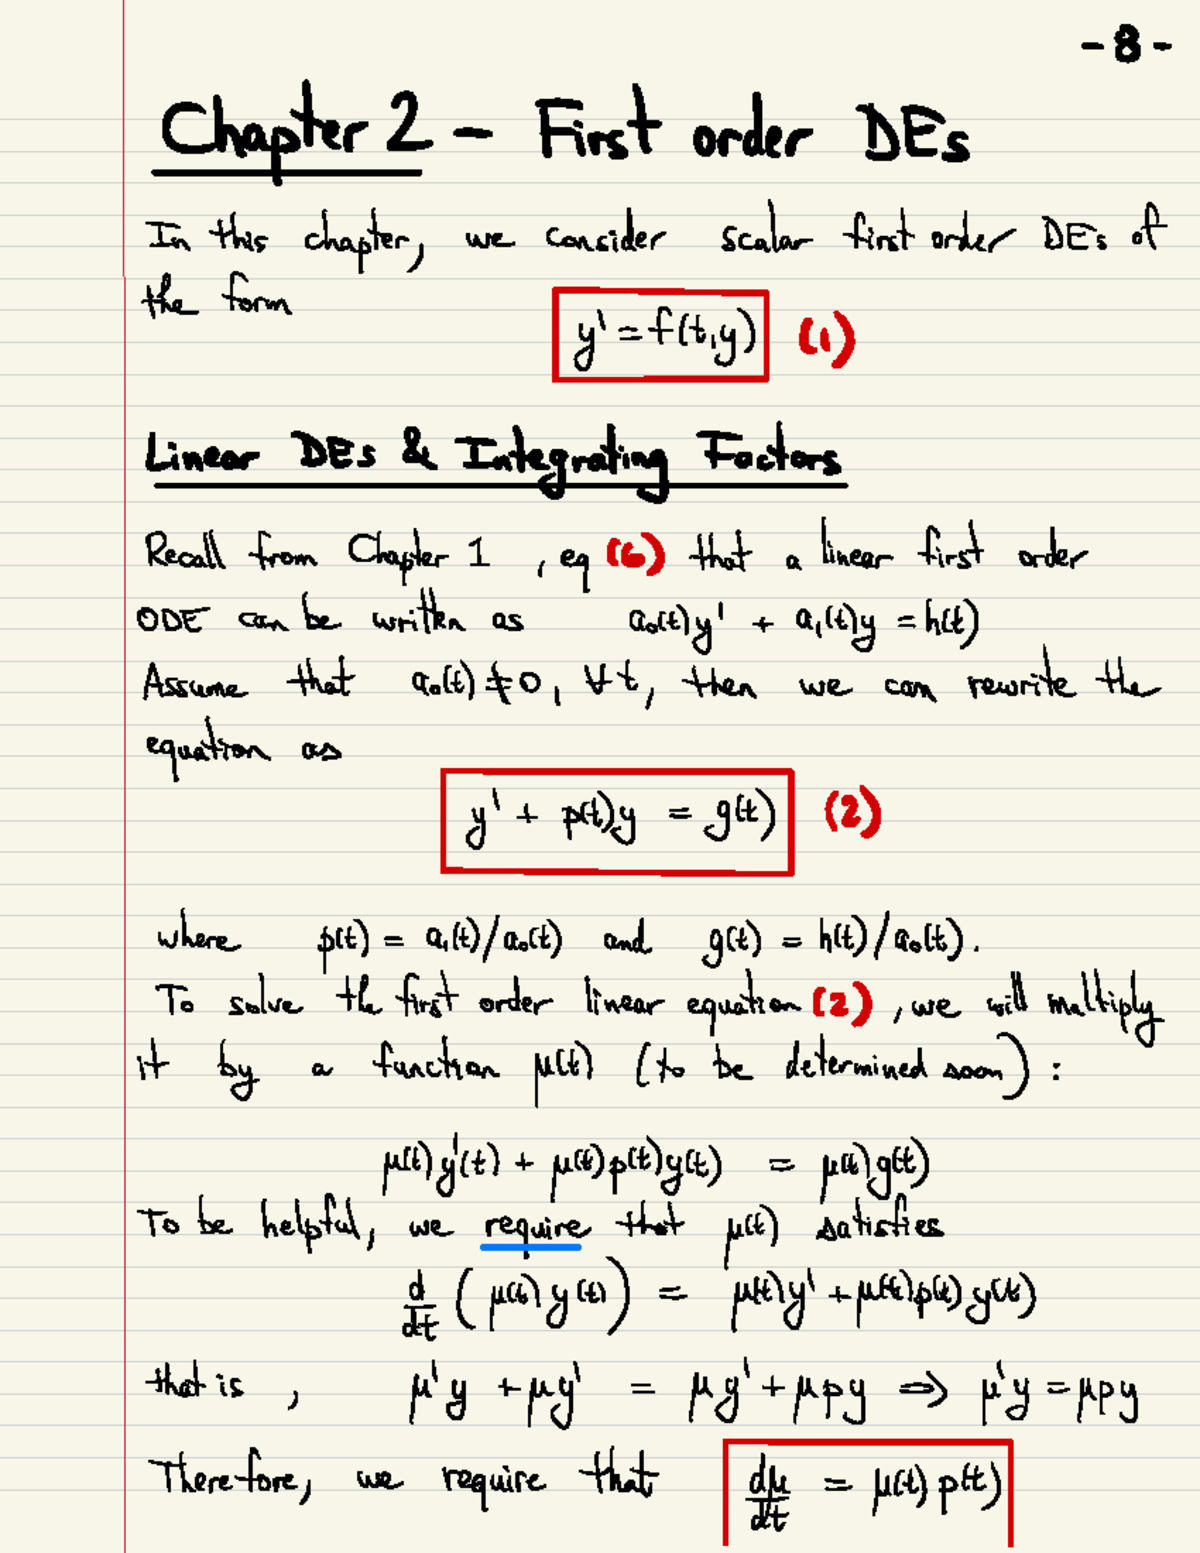 -8-
Chapter 2 - First order DEs
In this chapter, we consider scalar first order DEs of
the form
y' = f(t,y) (1)
Linear DEs & Integrating Factors
Recall from Chapter 1, eq (6) that a linear first order
ODE can be written as a₀(t)y' + a₁(t)y = h(t)
Assume that a₀(t) ≠ 0, ∀t, then we can rewrite the
equation as
y' + p(t)y = g(t) (2)
where p(t) = a₁(t)/a₀(t) and g(t) = h(t)/a₀(t).
To solve the first order linear equation (2), we will multiply
it by a function μ(t) (to be determined soon):
μ(t)y'(t) + μ(t)p(t)y(t) = μ(t)g(t)
To be helpful, we require that μ(t) satisfies
d/dt (μ(t)y(t)) = μ(t)y' + μ(t)p(t)y(t)
that is, μ'y + μy' = μy' + μpy ⇒ μ'y = μpy
Therefore, we require that dμ/dt = μ(t)p(t)